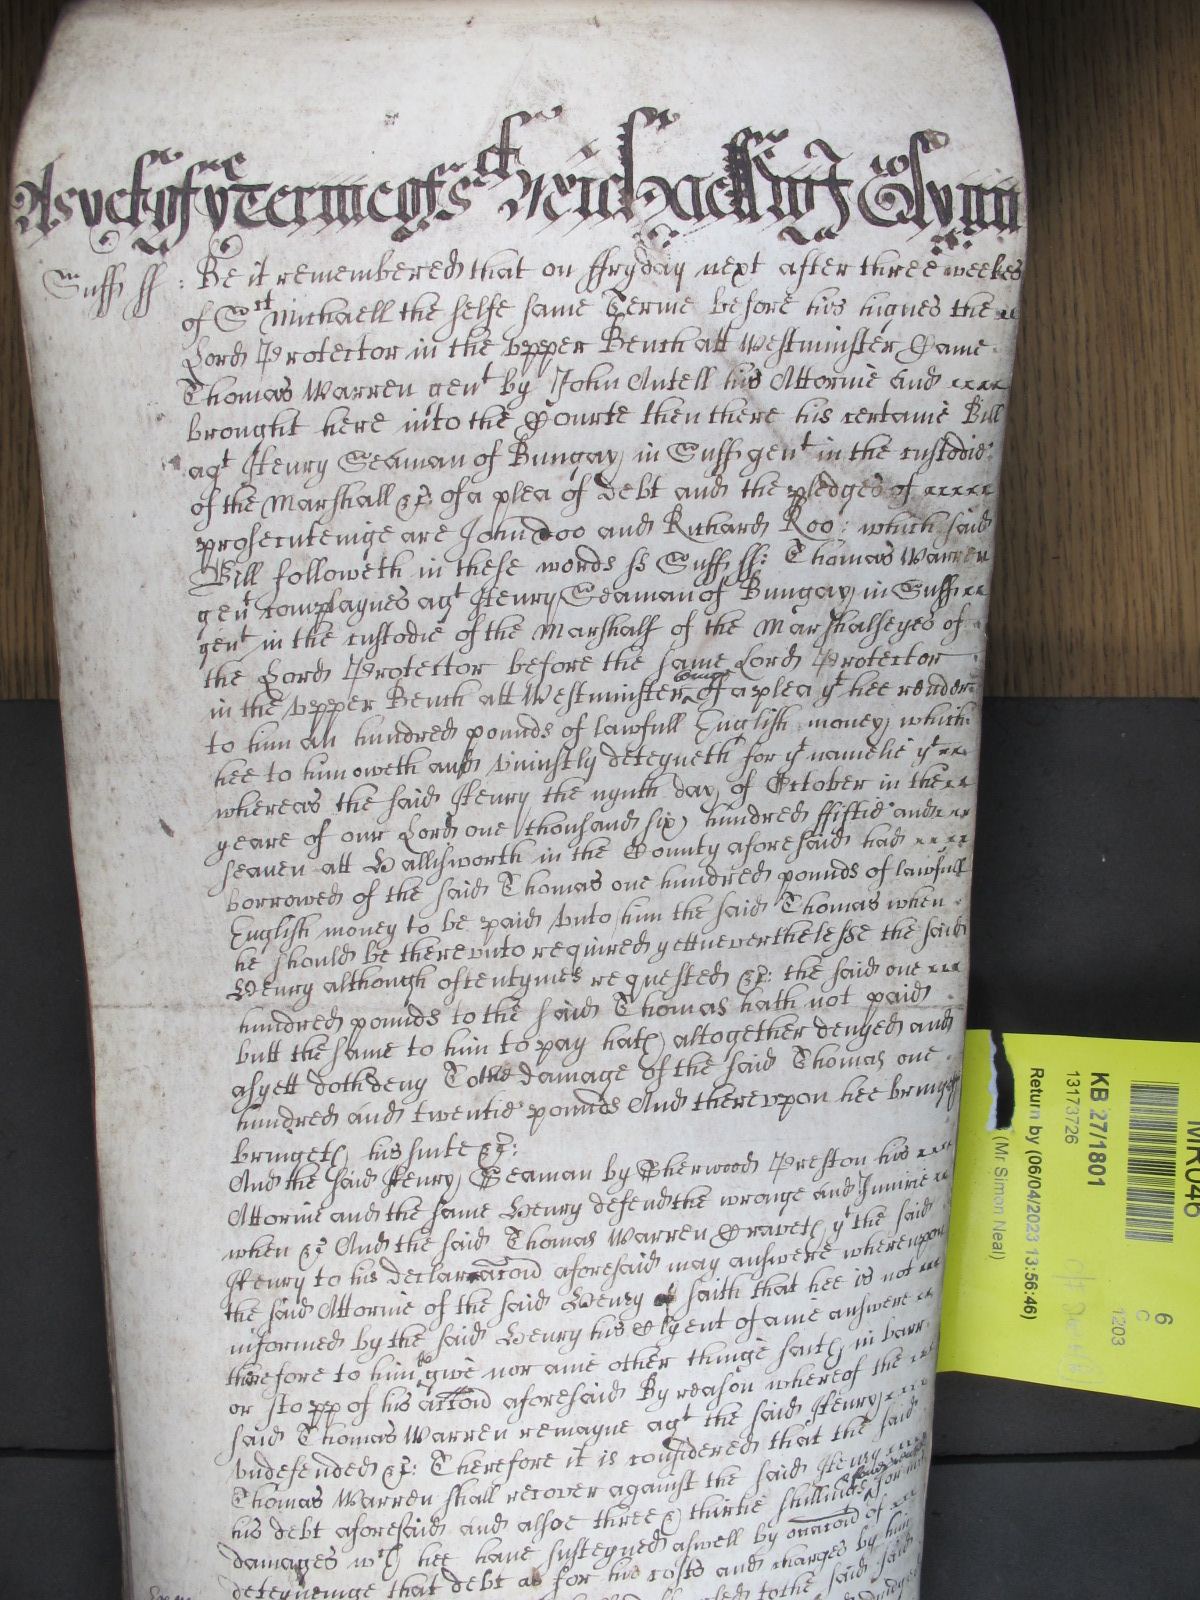 As yet of ye Terme of St Michaell Witt Glynn
Suff ss : Be it remembered that on ffryday next after three weekes
of St Michaell the selfe same Terme before his highnes the
Lord Protector in the vpper Bench att Westminster Came
Thomas Warren gent by John Antell his Attornie And
brought here into the Courte then there his certaine Bill
agt Henry Seaman of Bungay in Suff gent in the custodie
of the Marshall &c: of a plea of debt and the pledges of
prosecuteinge are John Doo and Richard Roo: which said
Bill followeth in these words ss Suff ss: Thomas Warren
gent complaynes agt Henry Seaman of Bungay in Suff
gent in the custodie of the Marshall of the Marshalseyes of
the Lord Protector before the same Lord Protector
in the vpper Bench att Westminster beinge of a plea yt hee render
to him an hundred pounds of lawfull English money which
hee to him oweth and vniustly deteyneth for yt namelie yt
whereas the said Henry the nynth day of October in the
yeare of our Lord one thousand six hundred ffiftie and
seauen att Wallisworth in the County aforesaid had
borrowed of the said Thomas one hundred pounds of lawfull
English money to be paid vnto him the said Thomas when
he should be therevnto required yett neverthelesse the said
Henry although oftentymes requested &c: the said one
hundred pounds to the said Thomas hath not paid
butt the same to him to pay hath altogether denyed and
as yett doth deny To the damage of the said Thomas one
hundred and twentie pounds And therevpon hee bringeth
bringeth his suite &c:
And the said Henry Seaman by Sherwood Preston his
Attornie and the same Henry defend the wronge and Iniurie
when &c And the said Thomas Warren Craveth yt the said
Henry to his declaracion aforesaid may answere wherevpon
the said Attornie of the said Henry saith that hee is not
informed by the said Henry his Clyent of anie answere
therefore to him to give nor anie other thinge saith in barr
or stopp of his accion aforesaid By reason whereof the
said Thomas Warren remayne agt the said Henry
vndefended &c: Therefore it is considered that the said
Thomas Warren shall recover against the said Henry
his debt aforesaid and alsoe three & thirtie shillings for
damages wch hee have susteyned aswell by occacion of
deteyneinge that debt as for his costs and charges by him
to the said
MR046
KB 27/1801
13173726
Return by (06/04/2023 13:56:46)
(Mr Simon Neal)
6
C
1203